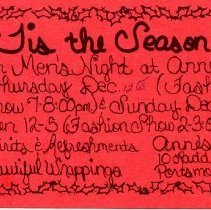 'Tis the Season
Men's Night at Anne
Thursday Dec. 13th (Fash
how 7-8:00pm) & Sunday Dec
en 12-5 (Fashion Show 2-3:
irits & Refreshments Annes
10 Ladd
autiful Wrappings Portsmo